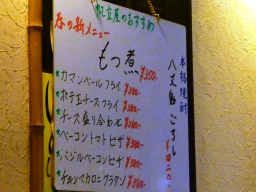 帆立屋のおすすめ
春の新メニュー
もつ煮 ¥350-
カマンベールフライ ¥350-
ポテ豆チーズフライ ¥380-
チーズ盛り合わせ ¥380-
ベーコントマトピザ ¥380-
バジルベーコンピザ ¥380-
チキンマカロニグラタン ¥380-
本格焼酎
八丈島ごろし
¥420-